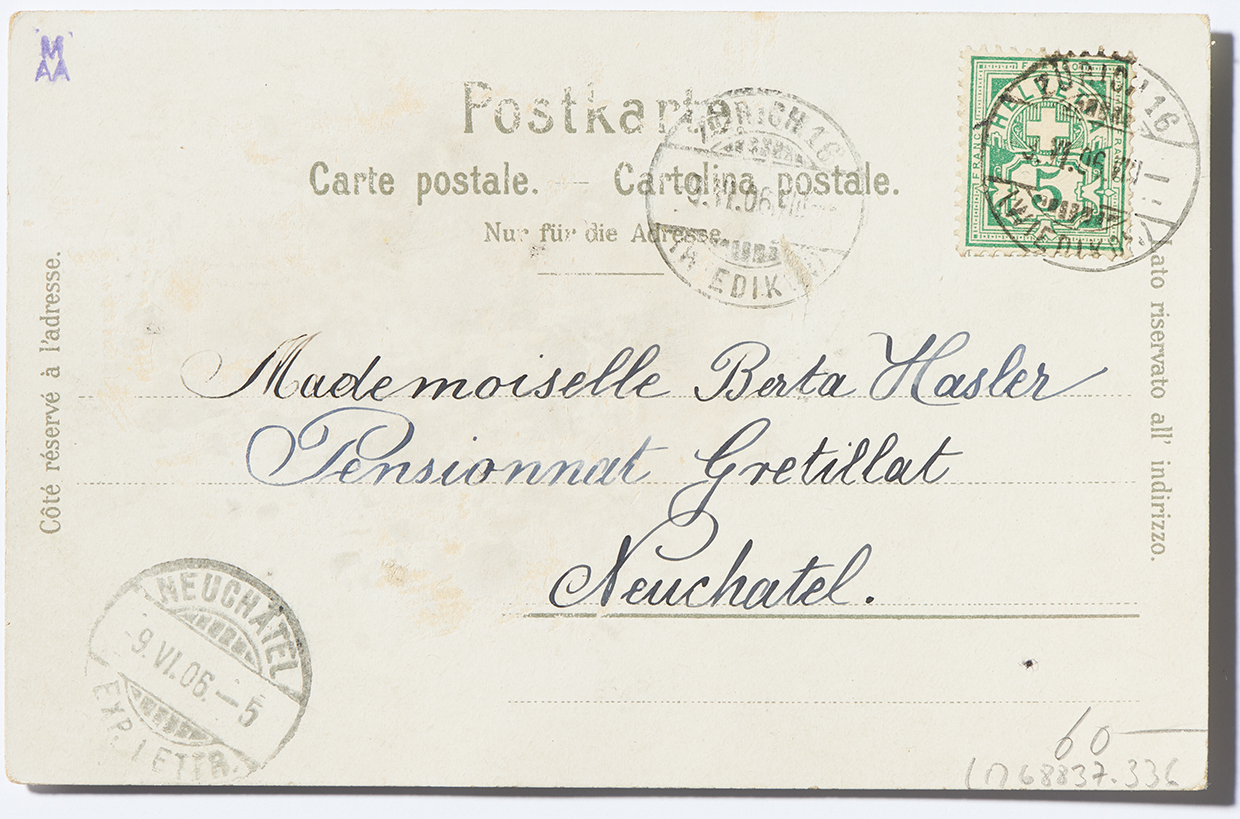 M
AA
Postkarte
Carte postale. — Cartolina postale.
Nur für die Adresse.
ZÜRICH 16
9.VI.06.VIII—
(WIEDIKON)
HELVETIA
FRANCO
5
ZÜRICH 16
9.VI.06.VIII
(WIEDIKON)
Côté réservé à l'adresse.
Lato riservato all' indirizzo.
Mademoiselle Berta Hasler
Pensionnat Gretillat
Neuchatel.
NEUCHATEL
-9.VI.06.—5
EXP. LETTR.
60—
68837.336